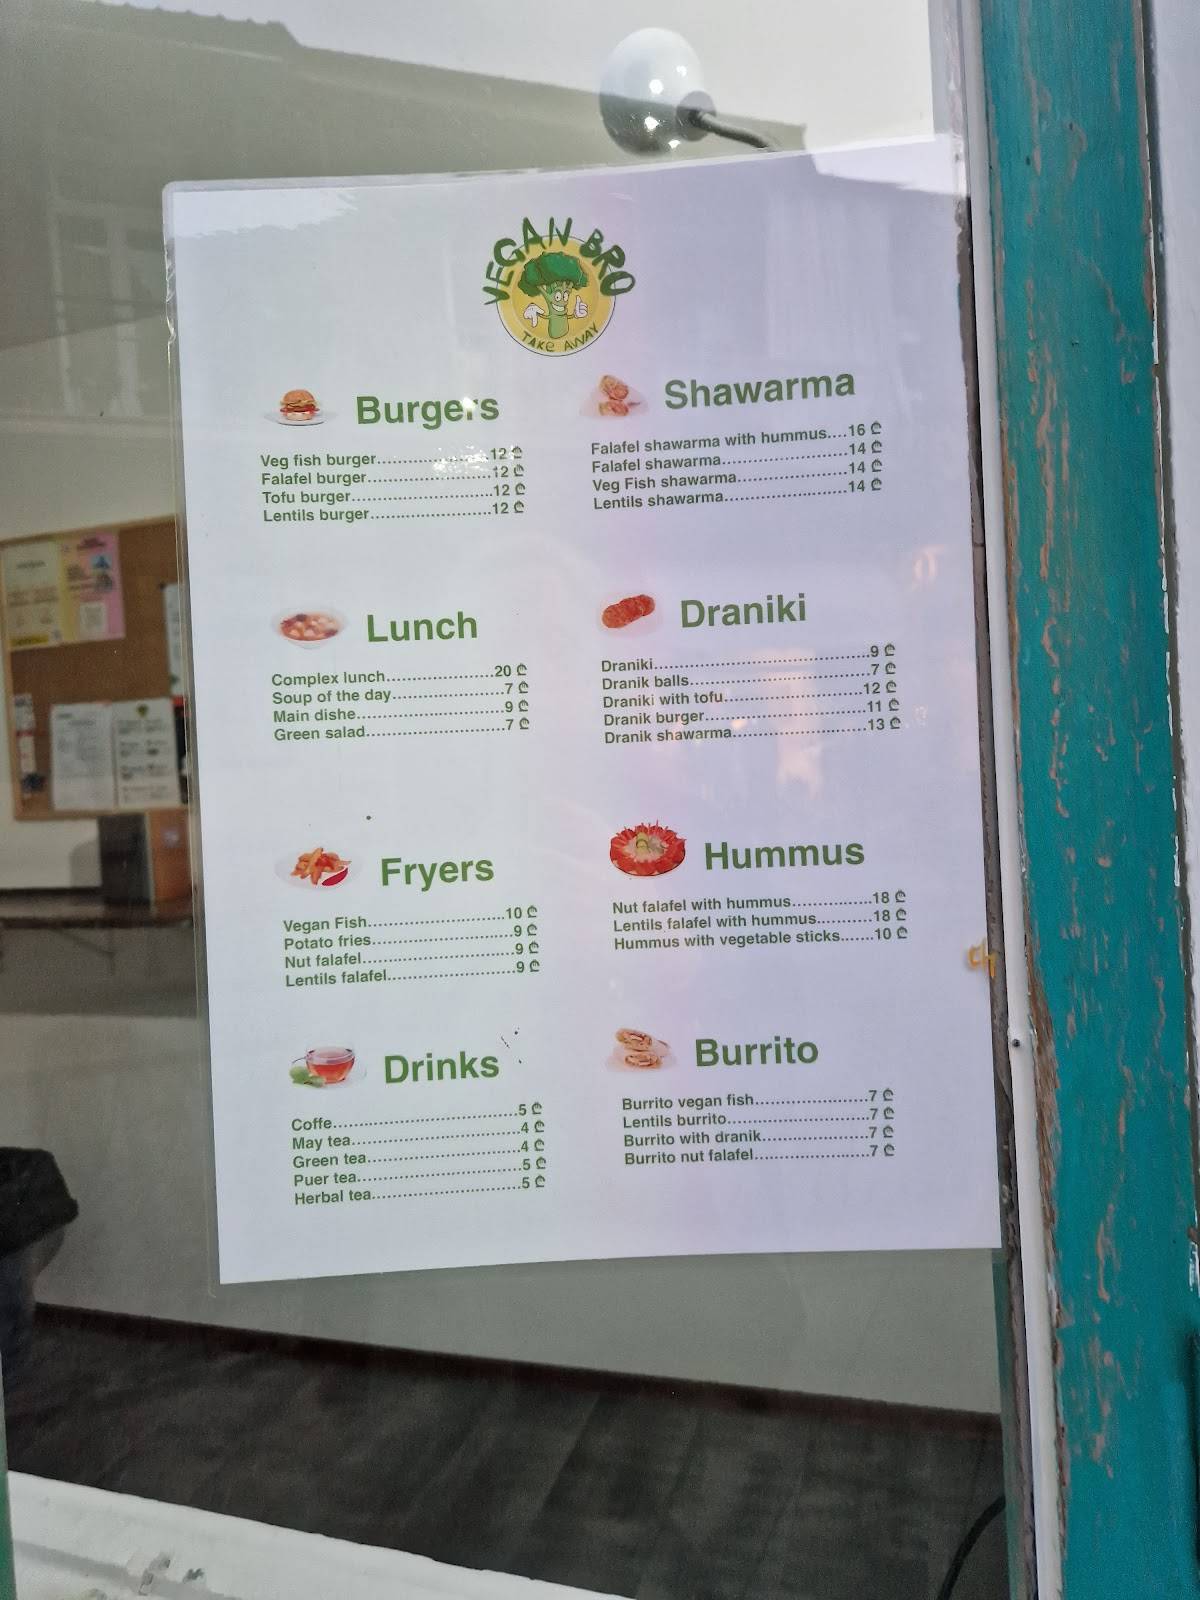 VEGAN BRO
TAKE AWAY
Burgers
Veg fish burger.....................12 ₾
Falafel burger.......................12 ₾
Tofu burger..........................12 ₾
Lentils burger.......................12 ₾
Shawarma
Falafel shawarma with hummus....16 ₾
Falafel shawarma.......................14 ₾
Veg Fish shawarma....................14 ₾
Lentils shawarma.......................14 ₾
Lunch
Complex lunch.....................20 ₾
Soup of the day.....................7 ₾
Main dishe...........................9 ₾
Green salad..........................7 ₾
Draniki
Draniki.........................................9 ₾
Dranik balls..................................7 ₾
Draniki with tofu..........................12 ₾
Dranik burger..............................11 ₾
Dranik shawarma.........................13 ₾
Fryers
Vegan Fish..........................10 ₾
Potato fries...........................9 ₾
Nut falafel.............................9 ₾
Lentils falafel........................9 ₾
Hummus
Nut falafel with hummus...............18 ₾
Lentils falafel with hummus..........18 ₾
Hummus with vegetable sticks.......10 ₾
Drinks
Coffe...................................5 ₾
May tea................................4 ₾
Green tea.............................4 ₾
Puer tea...............................5 ₾
Herbal tea............................5 ₾
Burrito
Burrito vegan fish.....................7 ₾
Lentils burrito...........................7 ₾
Burrito with dranik....................7 ₾
Burrito nut falafel......................7 ₾